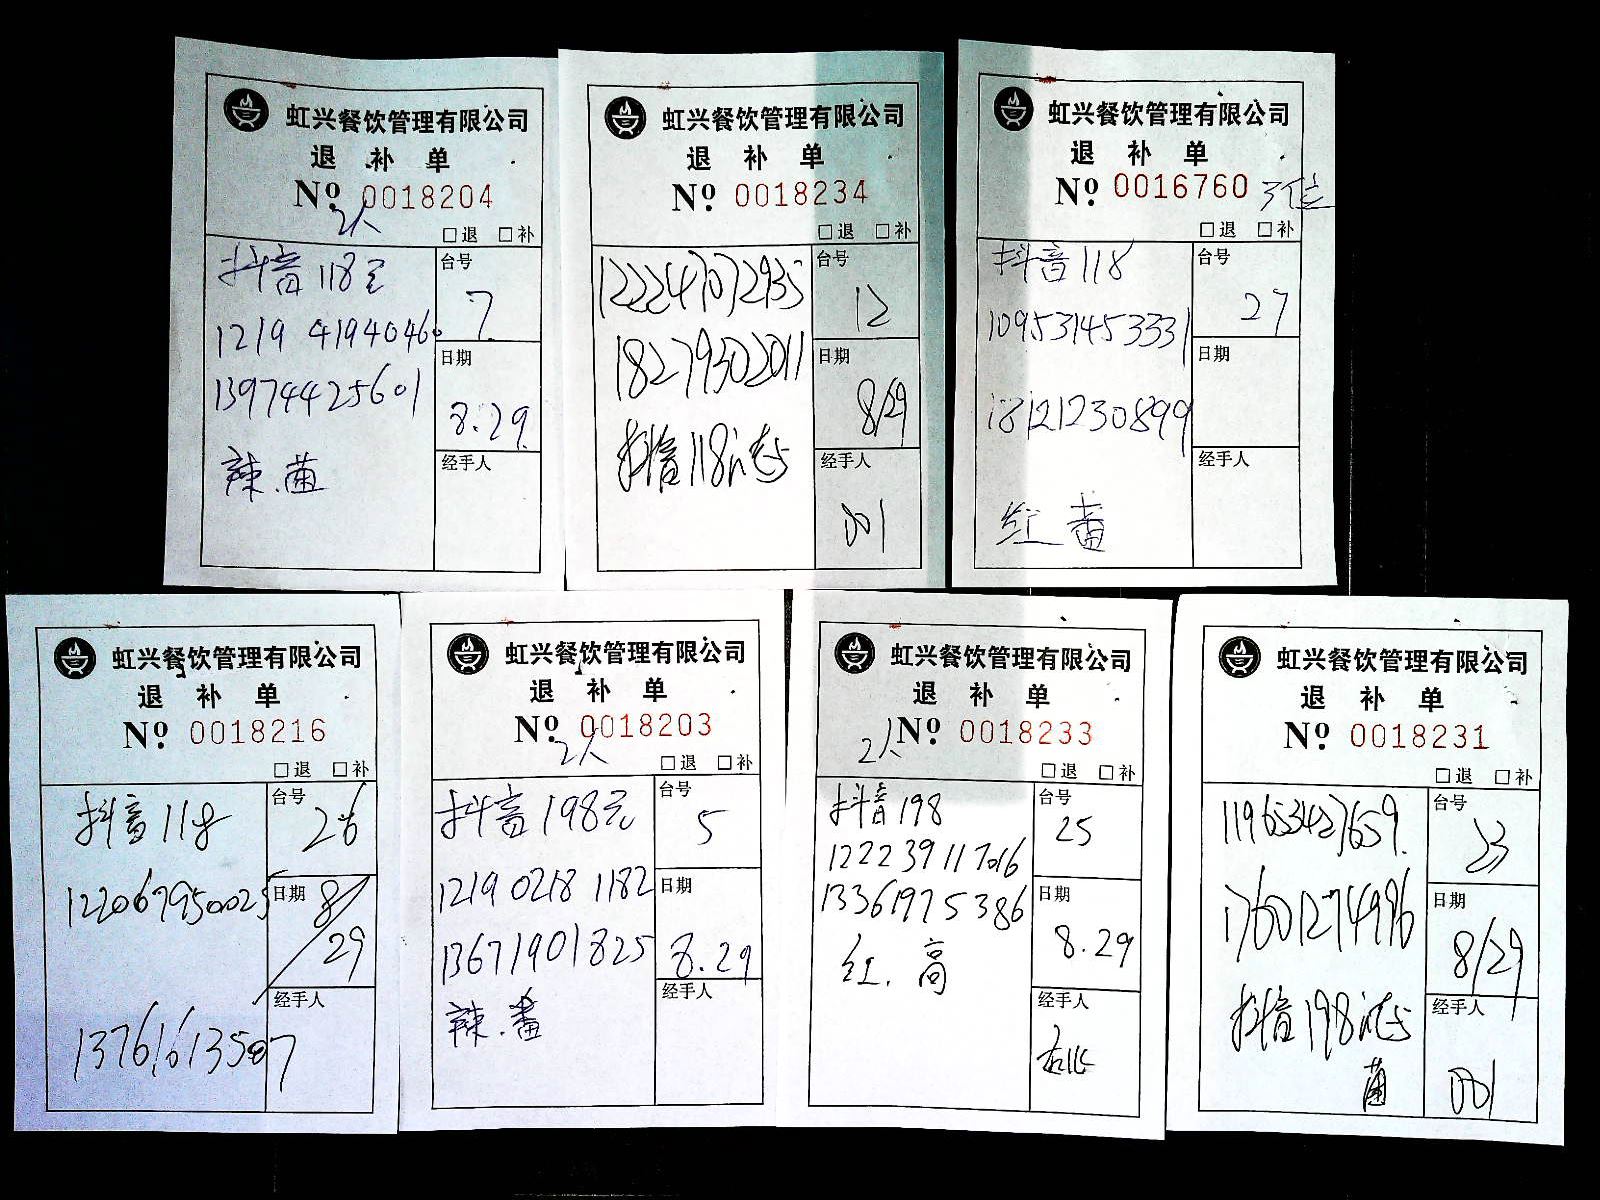 虹兴餐饮管理有限公司
退 补 单
Nº 0018204
2人
□退 □补
抖音118元
台号
7
1219 41940460
日期
13974425601
8.29
辣.菌
经手人
虹兴餐饮管理有限公司
退 补 单
Nº 0018234
□退 □补
122247072935
台号
12
18279302011
日期
8/29
抖音118
经手人
001
虹兴餐饮管理有限公司
退 补 单
Nº 0016760 3位
□退 □补
抖音118
台号
27
109531453331
日期
18121230899
经手人
红 番
虹兴餐饮管理有限公司
退 补 单
Nº 0018216
□退 □补
抖音118
台号
26
122067950025
日期
8/29
经手人
虹兴餐饮管理有限公司
退 补 单
Nº 0018203
2人
□退 □补
抖音198元
台号
5
1219 0218 1182
日期
13671901825
8.29
经手人
辣.番
虹兴餐饮管理有限公司
退 补 单
2人 Nº 0018233
□退 □补
抖音198
台号
25
122239117016
日期
13361975386
8.29
红.高
经手人
虹兴餐饮管理有限公司
退 补 单
Nº 0018231
□退 □补
119653427659
台号
23
17601274996
日期
8/29
抖音198
经手人
菌
001